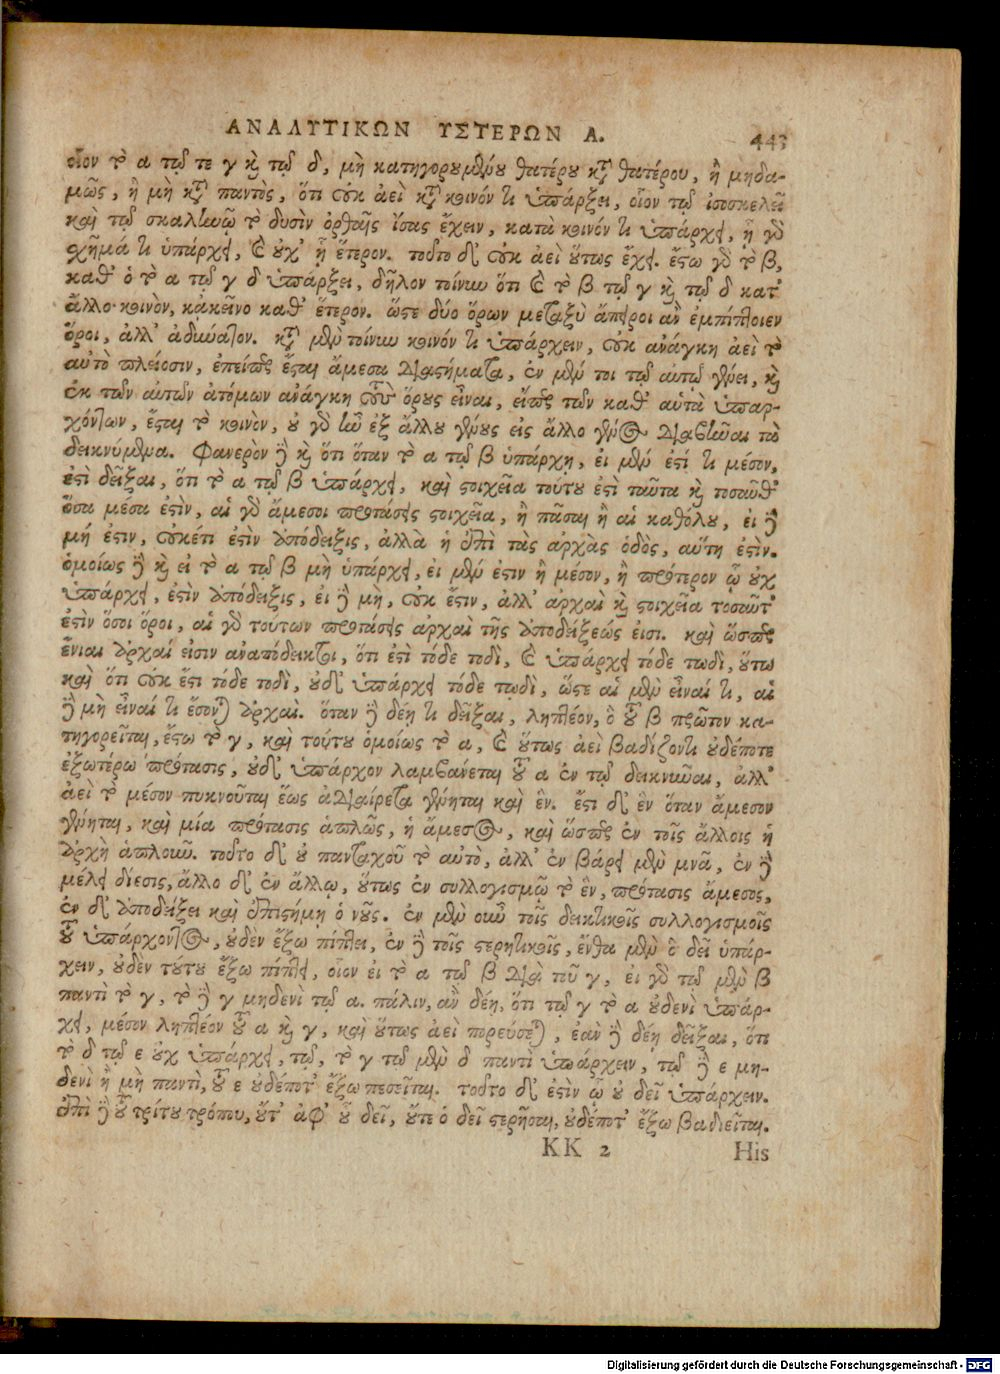 ΑΝΑΛΥΤΙΚΩΝ ΥΣΤΕΡΩΝ Α. 443
οἷον τὸ α τῷ τε γ καὶ τῷ δ, μὴ κατηγορουμένου θατέρου κατὰ θατέρου, ἢ μηδα-
μῶς, ἢ μὴ κατὰ παντὸς, ὅτι οὐκ ἀεὶ κατὰ κοινόν τι ὑπάρξει, οἷον τῷ ἰσοσκελεῖ
καὶ τῷ σκαληνῷ τὸ δυσὶν ὀρθαῖς ἴσας ἔχειν, κατὰ κοινόν τι ὑπάρχει, ᾗ γὰρ
σχῆμά τι ὑπάρχει, καὶ οὐχ' ᾗ ἕτερον. τοῦτο δ' οὐκ ἀεὶ οὕτως ἔχει. ἔστω γὰρ τὸ β,
καθ' ὃ τὸ α τῷ γ δ ὑπάρξει, δῆλον τοίνυν ὅτι καὶ τὸ β τῷ γ καὶ τῷ δ κατ'
ἄλλο κοινὸν, κἀκεῖνο καθ' ἕτερον. ὥστε δύο ὅρων μεταξὺ ἄπειροι ἂν ἐμπίπτοιεν
ὅροι, ἀλλ' ἀδύνατον. κατὰ μὲν τοίνυν κοινόν τι ὑπάρχειν, οὐκ ἀνάγκη ἀεὶ τὸ
αὐτὸ πλείοσιν, ἐπείπερ ἔσται ἄμεσα διαστήματα, ἐν μέν τοι τῷ αὐτῷ γένει, καὶ
ἐκ τῶν αὐτῶν ἀτόμων ἀνάγκη τοὺς ὅρους εἶναι, εἴπερ τῶν καθ' αὑτὰ ὑπαρ-
χόντων, ἔσται τὸ κοινὸν, οὐ γὰρ ἦν ἐξ ἄλλου γένους εἰς ἄλλο γένος διαβῆναι τὰ
δεικνύμενα. Φανερὸν δὲ καὶ ὅτι ὅταν τὸ α τῷ β ὑπάρχῃ, εἰ μέν ἐστί τι μέσον,
ἔστι δεῖξαι, ὅτι τὸ α τῷ β ὑπάρχει, καὶ στοιχεῖα τούτου ἐστὶ ταῦτα καὶ τοσαῦθ'
ὅσα μέσα ἐστὶν, αἱ γὰρ ἄμεσοι προτάσεις στοιχεῖα, ἢ πᾶσαι ἢ αἱ καθόλου, εἰ δὲ
μή ἐστιν, οὐκέτι ἐστὶν ἀπόδειξις, ἀλλὰ ἡ ἐπὶ τὰς ἀρχὰς ὁδὸς, αὕτη ἐστὶν.
ὁμοίως δὲ καὶ εἰ τὸ α τῷ β μὴ ὑπάρχει, εἰ μέν ἐστιν ἢ μέσον, ἢ πρότερον ᾧ οὐχ
ὑπάρχει, ἐστὶν ἀπόδειξις, εἰ δὲ μὴ, οὐκ ἔστιν, ἀλλ' ἀρχαὶ καὶ στοιχεῖα τοσαῦτ'
ἐστὶν ὅσοι ὅροι, αἱ γὰρ τούτων προτάσεις ἀρχαὶ τῆς ἀποδείξεώς εἰσι. καὶ ὥσπερ
ἔνιαι ἀρχαί εἰσιν ἀναπόδεικτοι, ὅτι ἐστὶ τόδε τοδὶ, καὶ ὑπάρχει τόδε τῳδὶ, οὕτω
καὶ ὅτι οὐκ ἔστι τόδε τοδὶ, οὐδ' ὑπάρχει τόδε τῳδὶ, ὥστε αἱ μὲν εἶναί τι, αἱ
δὲ μὴ εἶναί τι ἔσονται ἀρχαὶ. ὅταν δὲ δέῃ τι δεῖξαι, ληπτέον, ὃ τοῦ β πρῶτον κα-
τηγορεῖται, ἔστω τὸ γ, καὶ τούτου ὁμοίως τὸ α, καὶ οὕτως ἀεὶ βαδίζοντι οὐδέποτε
ἐξωτέρω πρότασις, οὐδ' ὑπάρχον λαμβάνεται τοῦ α ἐν τῷ δεικνύναι, ἀλλ'
ἀεὶ τὸ μέσον πυκνοῦται ἕως ἀδιαίρετα γένηται καὶ ἓν. ἔστι δ' ἓν ὅταν ἄμεσον
γένηται, καὶ μία πρότασις ἁπλῶς, ἡ ἄμεσος, καὶ ὥσπερ ἐν τοῖς ἄλλοις ἡ
ἀρχὴ ἁπλοῦν. τοῦτο δ' οὐ πανταχοῦ τὸ αὐτὸ, ἀλλ' ἐν βάρει μὲν μνᾶ, ἐν δὲ
μέλει δίεσις, ἄλλο δ' ἐν ἄλλῳ, οὕτως ἐν συλλογισμῷ τὸ ἓν, πρότασις ἄμεσος,
ἐν δ' ἀποδείξει καὶ ἐπιστήμῃ ὁ νοῦς. ἐν μὲν οὖν τοῖς δεικτικοῖς συλλογισμοῖς
τοῦ ὑπάρχοντος, οὐδὲν ἔξω πίπτει, ἐν δὲ τοῖς στερητικοῖς, ἔνθα μὲν ὃ δεῖ ὑπάρ-
χειν, οὐδὲν τούτου ἔξω πίπτει, οἷον εἰ τὸ α τῷ β διὰ τοῦ γ, εἰ γὰρ τῷ μὲν β
παντὶ τὸ γ, τὸ δὲ γ μηδενὶ τῷ α. πάλιν, ἂν δέῃ, ὅτι τῷ γ τὸ α οὐδενὶ ὑπάρ-
χει, μέσον ληπτέον τοῦ α καὶ γ, καὶ οὕτως ἀεὶ πορεύσεται, ἐὰν δὲ δέῃ δεῖξαι, ὅτι
τὸ δ τῷ ε οὐχ ὑπάρχει, τῷ, τὸ γ τῷ μὲν δ παντὶ ὑπάρχειν, τῷ δὲ ε μη-
δενὶ ἢ μὴ παντὶ, τοῦ ε οὐδέποτ' ἔξω πεσεῖται. τοῦτο δ' ἐστὶν ᾧ οὐ δεῖ ὑπάρχειν.
ἐπὶ δὲ τοῦ τρίτου τρόπου, οὔτ' ἀφ' οὗ δεῖ, οὔτε ὃ δεῖ στερῆσαι, οὐδέποτ' ἔξω βαδιεῖται.
KK 2 His
Digitalisierung gefördert durch die Deutsche Forschungsgemeinschaft - DFG